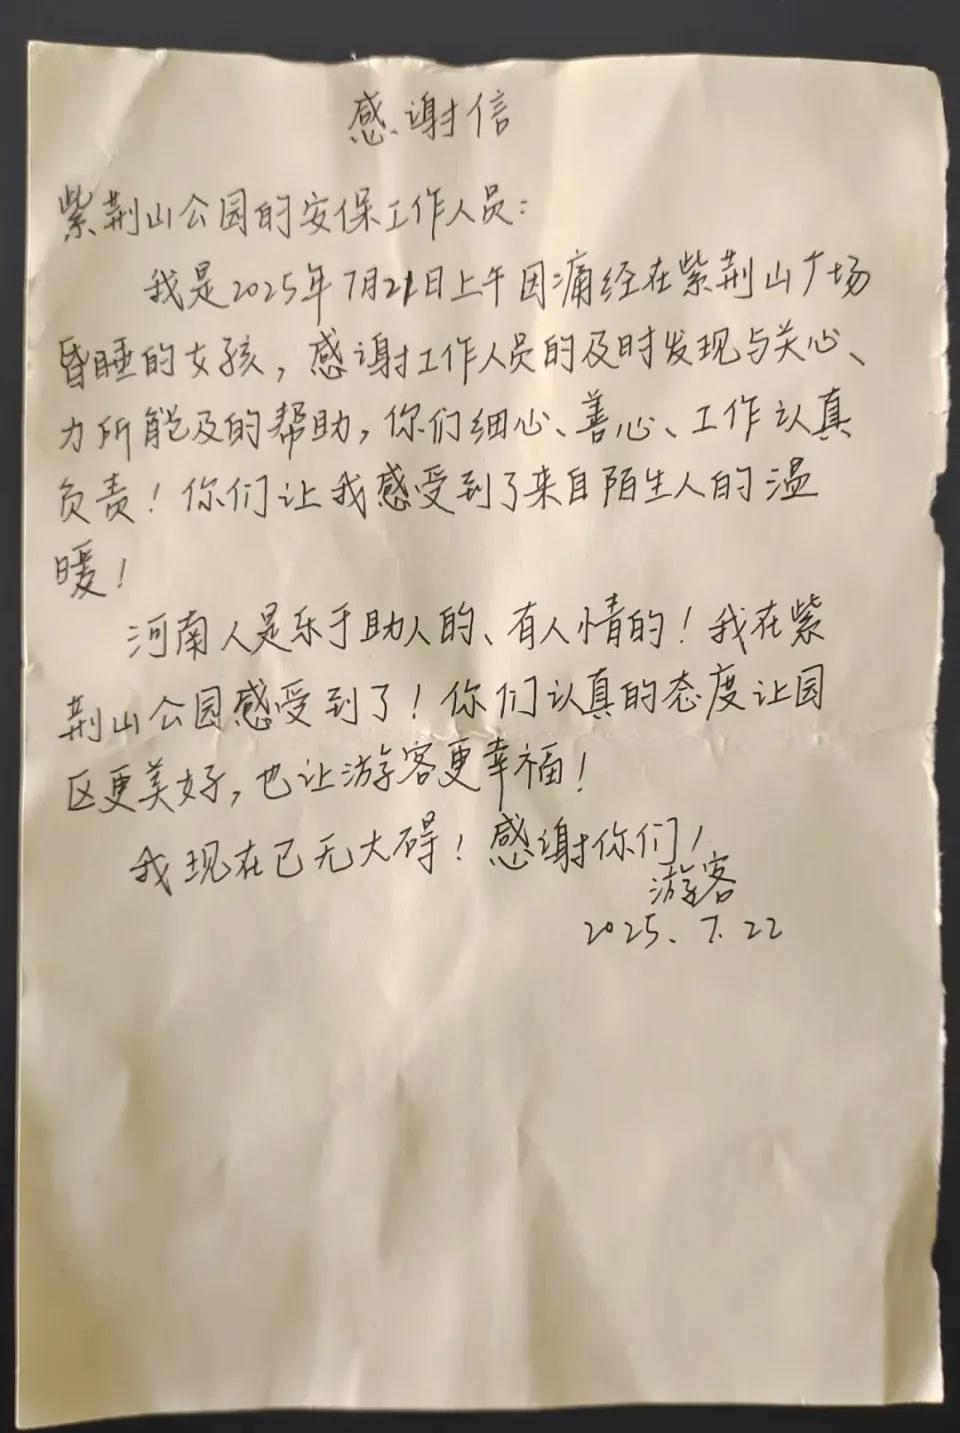 感谢信
紫荆山公园的安保工作人员：
我是2025年7月21日上午因痛经在紫荆山广场
昏睡的女孩，感谢工作人员的及时发现与关心、
力所能及的帮助，你们细心、善心、工作认真
负责！你们让我感受到了来自陌生人的温
暖！
河南人是乐于助人的、有人情的！我在紫
荆山公园感受到了！你们认真的态度让园
区更美好，也让游客更幸福！
我现在已无大碍！感谢你们！
游客
2025.7.22